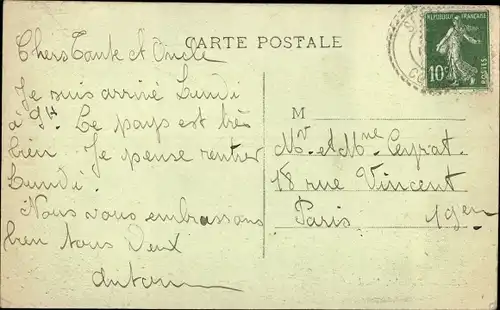 CARTE POSTALE
Chers Tante et Oncle
Je suis arrivé Lundi
à 9H. Le pays est très
bien. Je pense rentrer
Lundi.
Nous vous embrassons
bien tous Deux
M
Mr. et Mme
18 rue Vincent
Paris
REPUBLIQUE FRANÇAISE
10c
POSTES